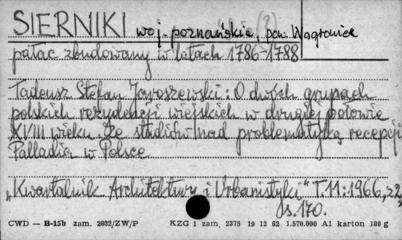 SIERNIKI woj. poznańskie, (?) pow. Wągrowiec
pałac zbudowany w latach 1786-1788
Tadeusz Stefan Jaroszewski: O dwóch grupach
polskich rezydencji wiejskich w drugiej połowie
XVIII wieku. Ze studiów nad problematyką recepcji
Palladia w Polsce
"Kwartalnik Architektury i Urbanistyki" T.11:1966, z.2,
s. 170.
CWD — B-150 zam. 2022/ZW/P KZG 1 zam. 2375 19 12 62 1.570.000 A1 karton 180 g